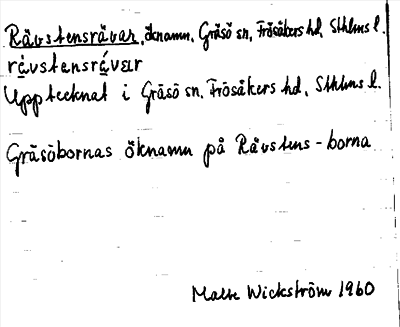 Rävstensrävar, öknamn. Gräsö sn, Frösåkers hd, Sthlms l.
rä̀vstensrä́vɛr
Upptecknat i Gräsö sn, Frösåkers hd, Sthlms l.
Gräsöbornas öknamn på Rävstens-borna
Malte Wickström 1960